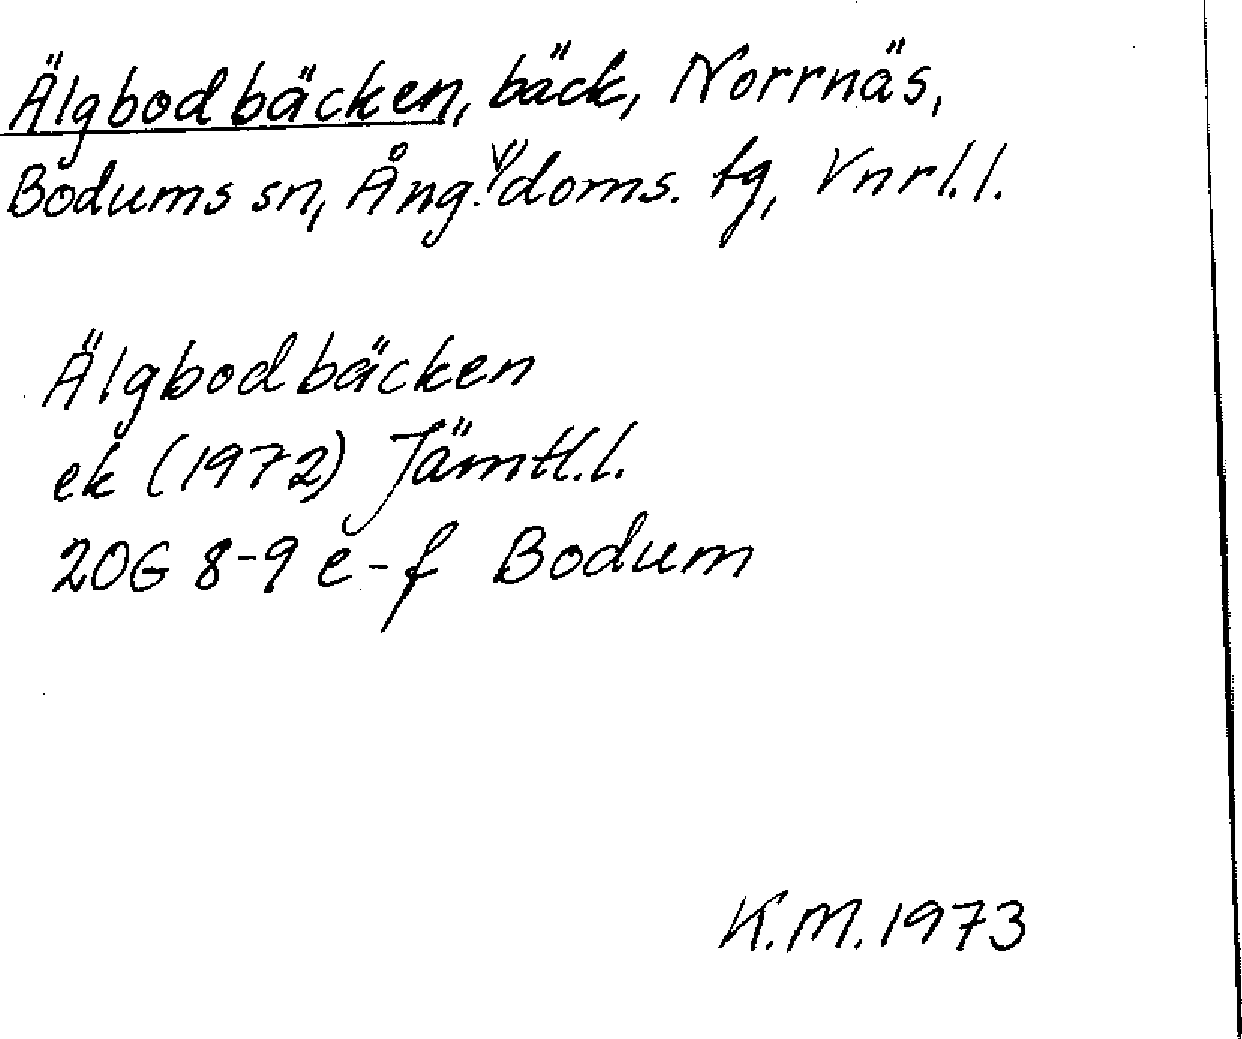 Älgbodbäcken, bäck, Norrnäs,
Bodums sn, Ång. V doms. tg, Vnrl. l.
Älgbodbäcken
ek (1972) Jämtl. l.
20G 8-9 e-f Bodum
K.M. 1973